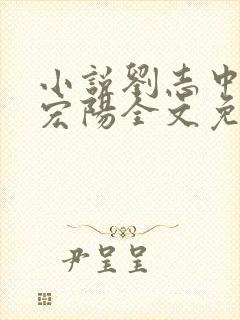 小説劉志中
宏陽全文免
尹呈呈